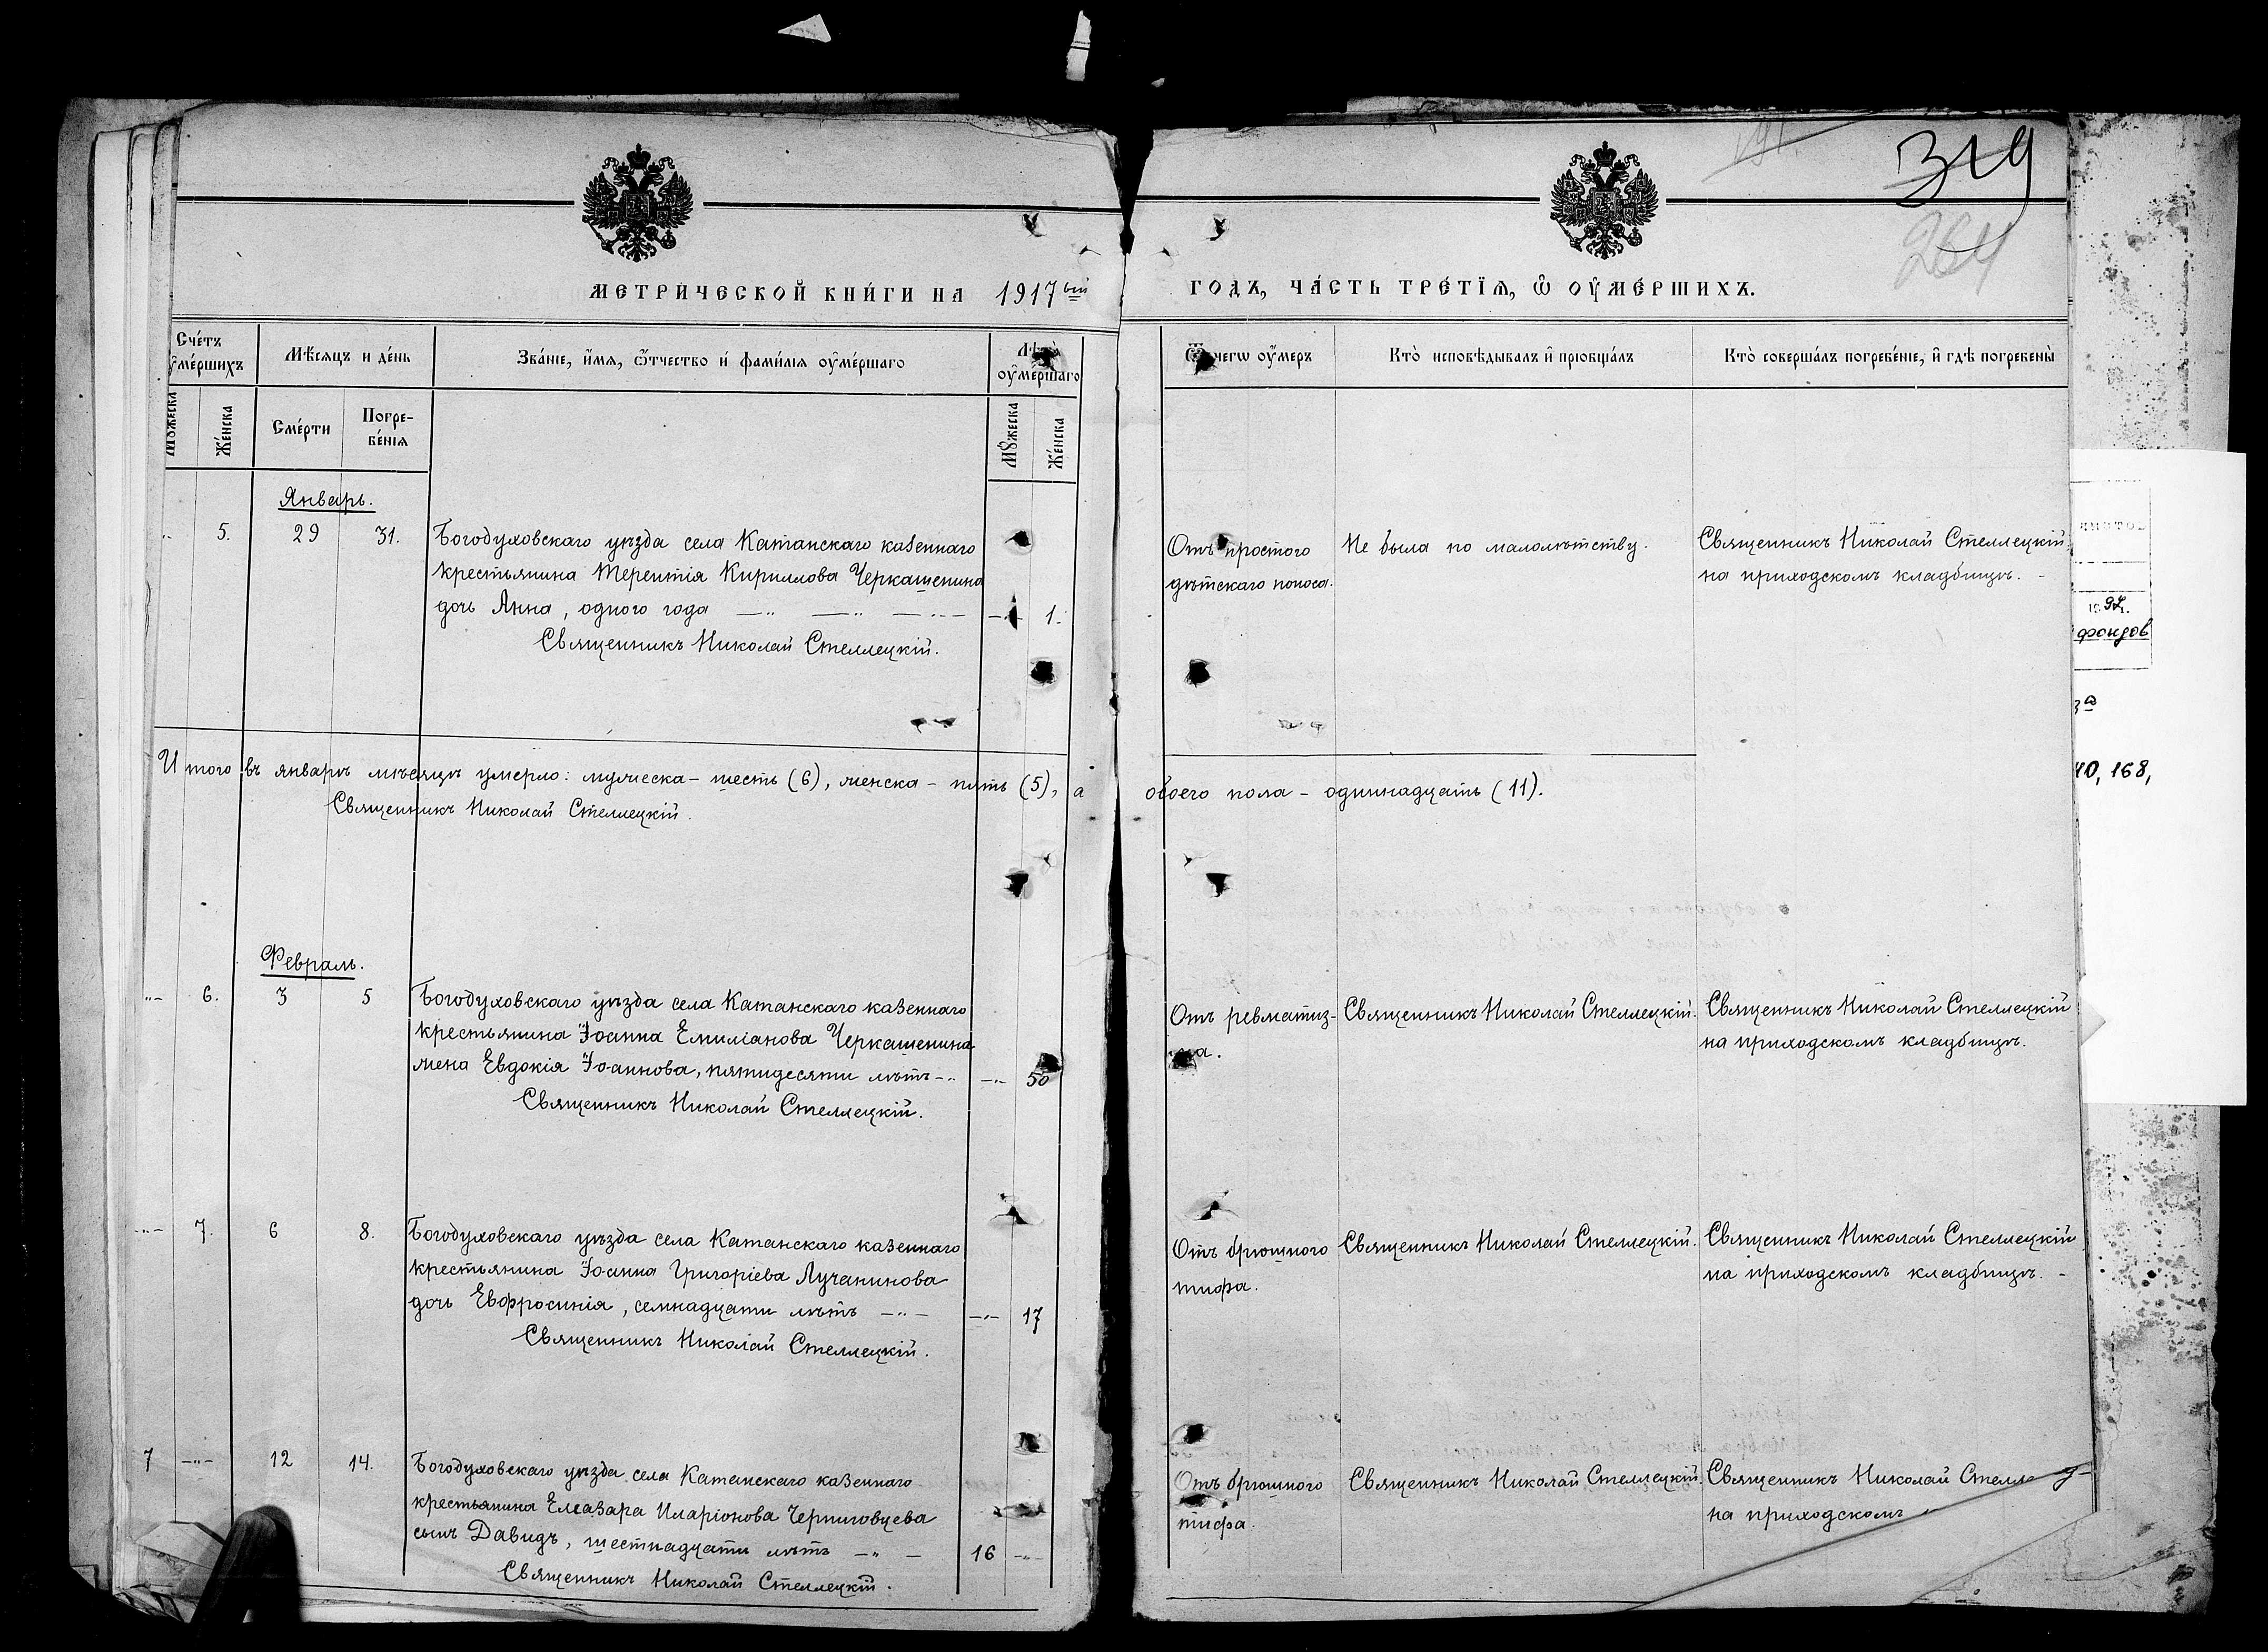 319
264
МЕТРИЧЕСКОЙ КНИ́ГИ НА 1917ый
ГОДЪ, ЧА́СТЬ ТРЕ́ТЇѦ, Ѽ ОУ҆МЕ́РШИХЪ.
Сче́тъ
оу҆ме́ршихъ
Мѣ́сяцъ и де́нь
Зва́нїе, и҆́мя, ѻ҆́тчество и҆ фами́лїя оу҆ме́ршаго
Лѣ́та
оу҆ме́ршаго
Ѿ чегѡ оу҆́меръ
Кто̀ исповѣ́дывалъ и҆ прїобща́лъ
Кто̀ соверша́лъ погребе́нїе, и҆ гдѣ̀ погребены̀
Мꙋ́жеска
Же́нска
Сме́рти
Погре-
бе́нїя
Мꙋ́жеска
Же́нска
Январь.
5.
29
31.
Богодуховскаго уѣзда села Катанскаго казеннаго
крестьянина Терентія Кириллова Черкашенина
дочь Анна, одного года
1.
Священникъ Николай Стеллецкій.
Отъ простого
дѣтскаго поноса.
Не была по малолѣтству.
Священникъ Николай Стеллецкій
на приходскомъ кладбищѣ.
Итого въ январѣ мѣсяцѣ умерло: мужеска – шесть (6), женска – пять (5), а обоего пола – одиннадцать (11).
Священникъ Николай Стеллецкій.
Февраль.
6.
3
5
Богодуховскаго уѣзда села Катанскаго казеннаго
крестьянина Іоанна Емиліанова Черкашенина
жена Евдокія Іоаннова, пятидесяти лѣтъ
50
Священникъ Николай Стеллецкій.
Отъ ревматиз-
ма.
Священникъ Николай Стеллецкій.
Священникъ Николай Стеллецкій
на приходскомъ кладбищѣ.
7.
6
8.
Богодуховскаго уѣзда села Катанскаго казеннаго
крестьянина Іоанна Григоріева Лучанинова
дочь Евфросинія, семнадцати лѣтъ
17
Священникъ Николай Стеллецкій.
Отъ брюшного
тифа.
Священникъ Николай Стеллецкій.
Священникъ Николай Стеллецкій
на приходскомъ кладбищѣ.
7
12
14.
Богодуховскаго уѣзда села Катанскаго казеннаго
крестьянина Елеазара Иларіонова Черниговцева
сынъ Давидъ, шестнадцати лѣтъ
16
Священникъ Николай Стеллецкій.
Отъ брюшного
тифа.
Священникъ Николай Стеллецкій.
Священникъ Николай Стелле
на приходскомъ
фондов
40, 168,